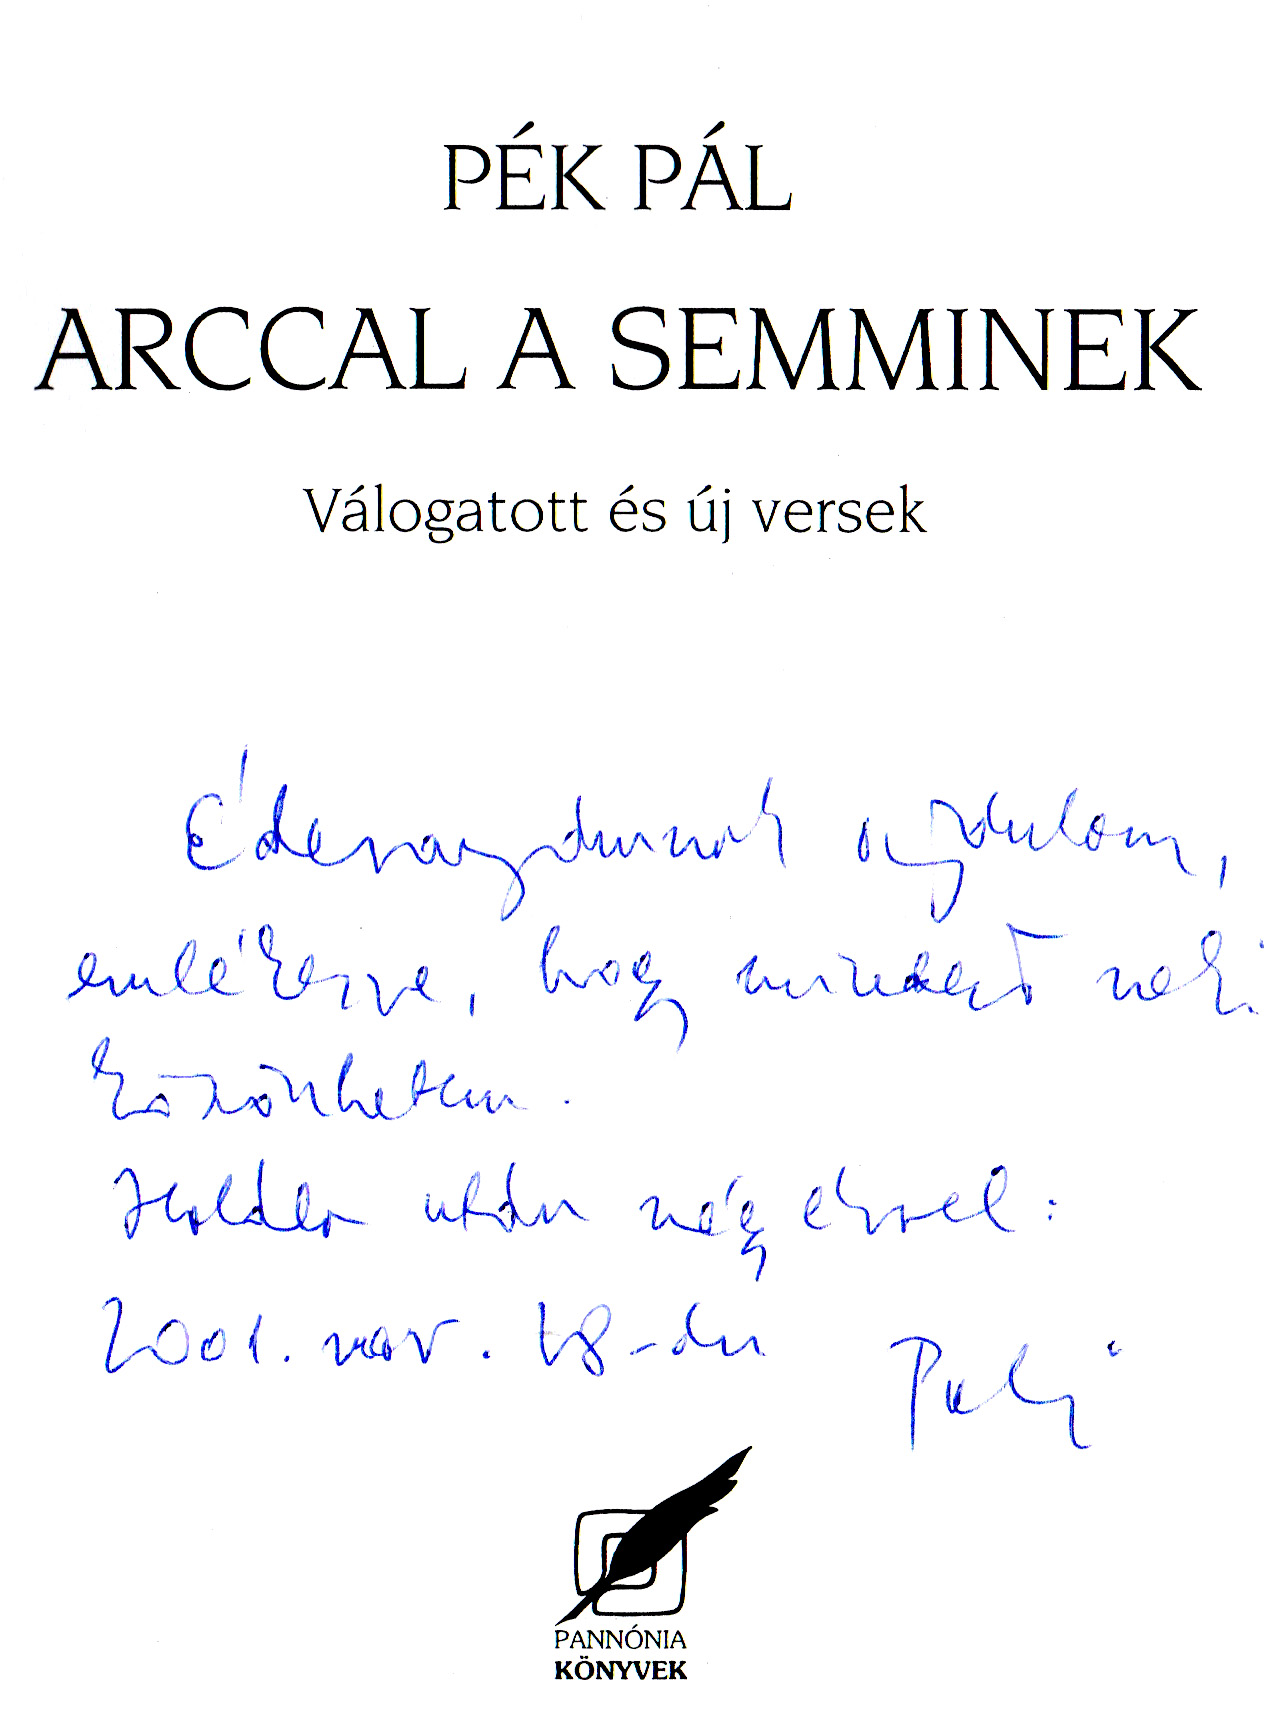 PÉK PÁL
ARCCAL A SEMMINEK
Válogatott és új versek
Édesanyámnak ajánlom,
emlékezve, hogy mindent neki
köszönhetem.
Halála után négy évvel:
2001. nov. 18-án Pali
PANNÓNIA
KÖNYVEK